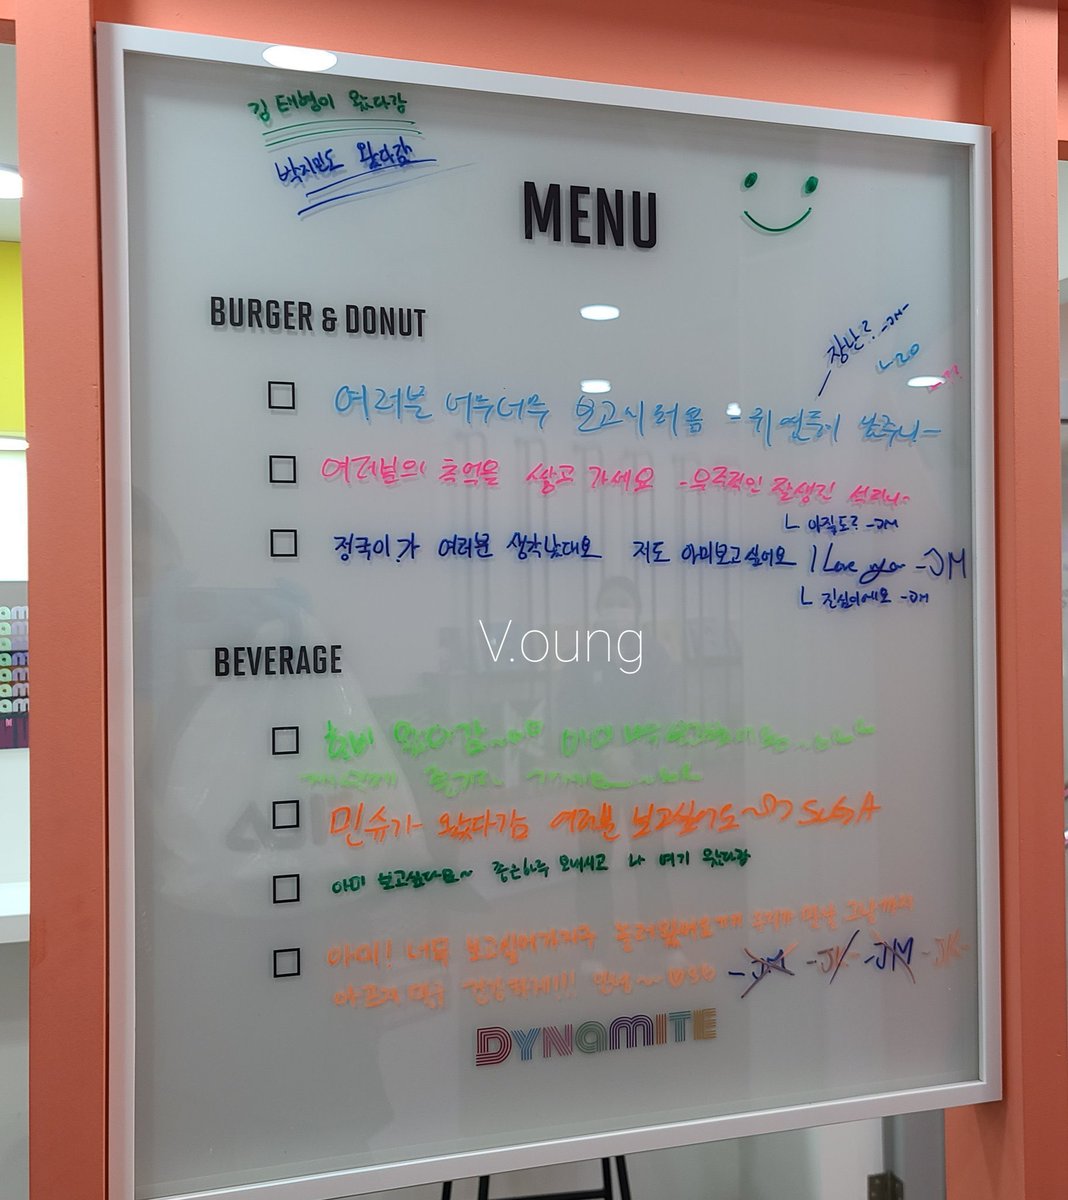 김태형이 왔다감
박지민도 왔다감
MENU
BURGER & DONUT
장난? -JM-
여러분 너무너무 보고시퍼욤 -귀염둥이 남주니-
여러분의 추억을 쌓고 가세요 -우주적인 잘생긴 석지니-
ㄴ 아직도? -JM
정국이가 여러분 생각난대요 저도 아미보고싶어요 I Love you -JM
ㄴ 진심이에요 -JM
V.oung
BEVERAGE
호비 왔다감 아미
민슈가 왔다감 여러분 보고싶어요 SUGA
아미 보고싶다요~ 좋은하루 보내시고 나 여기 왔다감
아미! 너무 보고싶어가지구 놀러왔네요 그날까지
아프지말구 건강하게!!! 안녕~ -JM -JK- -JM -JK-
DYNAMITE